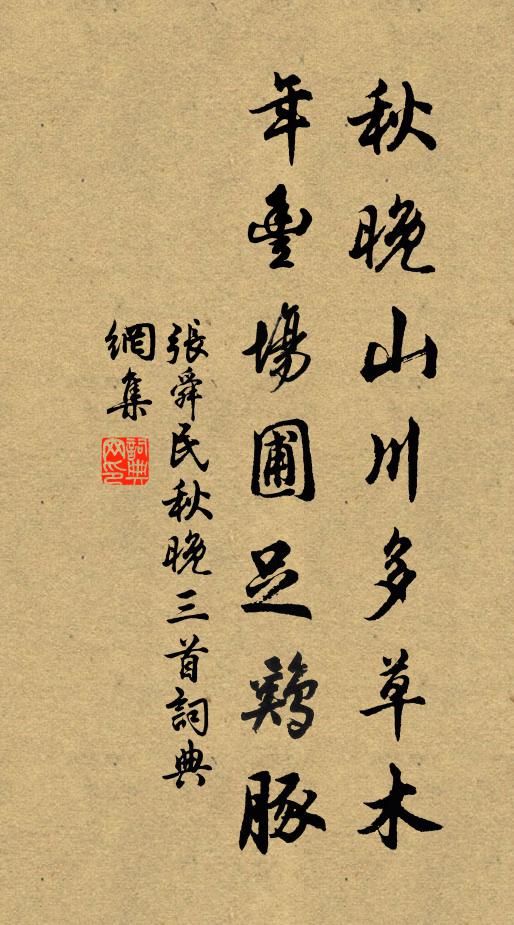 秋晚山川多草木
年豐場圃足鷄豚
張舜民秋晚三首詞典
網集
詞典
网印